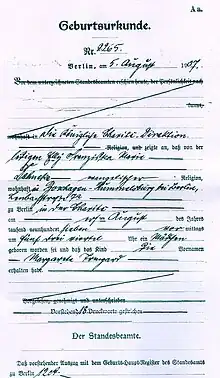 Aa.
Geburtsurkunde.
Nr. 8265.
Berlin, am 5. August 1907.
Vor dem unterzeichneten Standesbeamten erschien heute, der Persönlichkeit nach
kannt,
Die Königliche Charité-Direktion
Religion, und zeigte an, daß von der
ledigen Elly Franziska Marie
evangelischer Religion,
wohnhaft bei Berlin,
zu Berlin in der Charité
am August des Jahres
tausend neunhundert sieben vor mittags
um fünf drei viertel Uhr ein Mädchen
geboren worden sei und daß das Kind die Vornamen
Margarete Irmgard
erhalten habe.
Vorgelesen, genehmigt und unterschrieben
Vorstehend 18 Druckworte gestrichen
Der Standesbeamte.
Daß vorstehender Auszug mit dem Geburts-Haupt-Register des Standesamts
zu Berlin